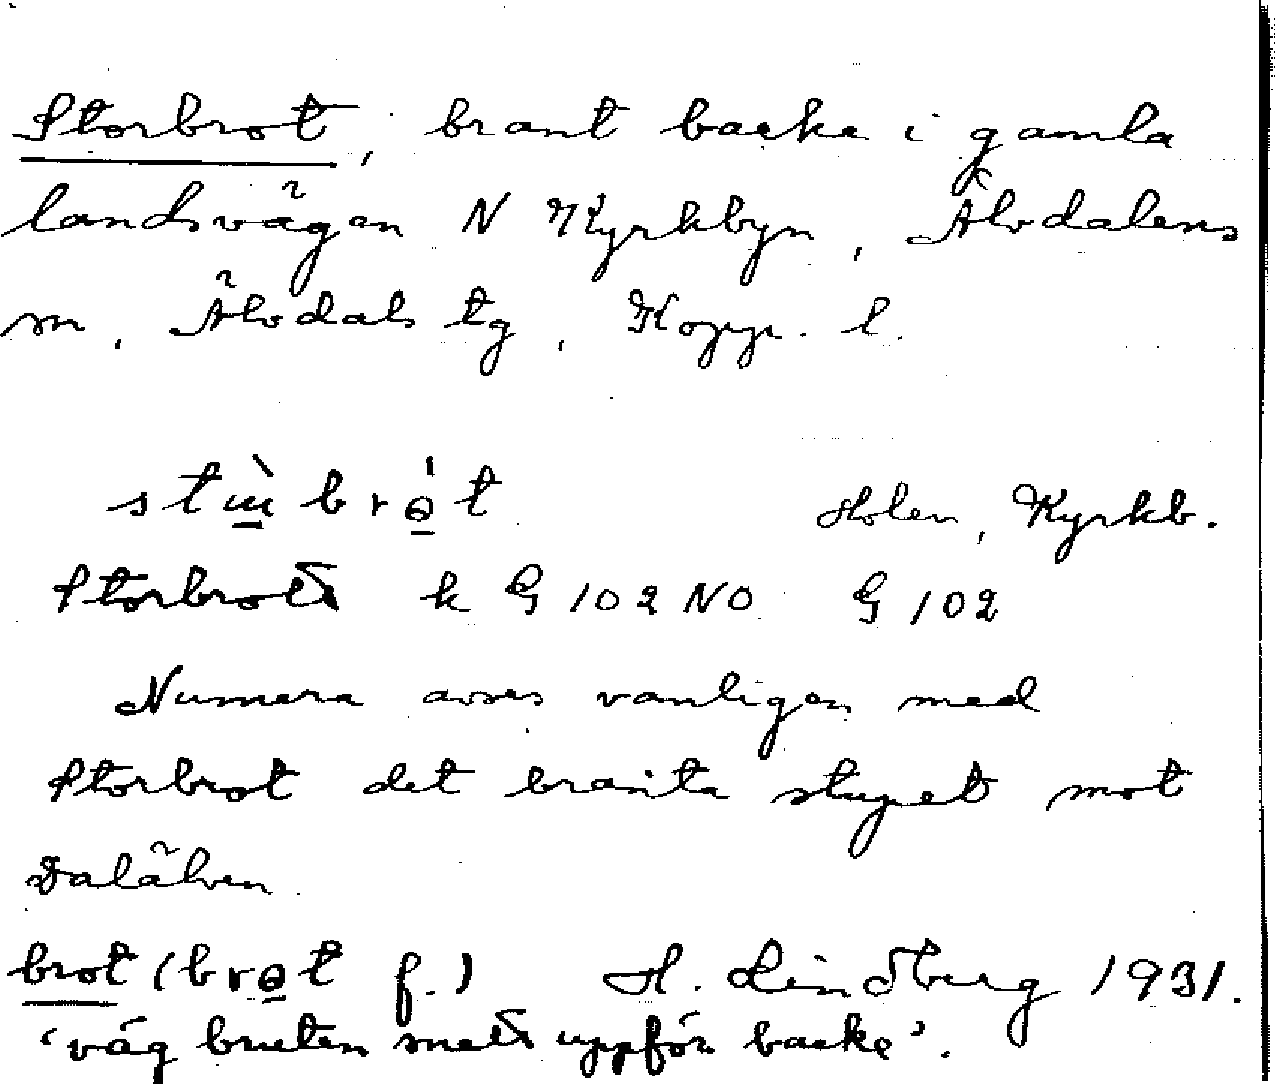 Storbrot, brant backe i gamla
landsvägen N Kyrkbyn, Älvdalens
sn, Älvdals tg, Kopp. l.
Holen, Kyrkb.
Storbrot k G 102 NO G 102
Numera avses vanligen med
Storbrot det branta stupet mot
Dalälven
brot (brɵt f.) H. Lindberg 1931.
'väg bruten snett uppför backe'.